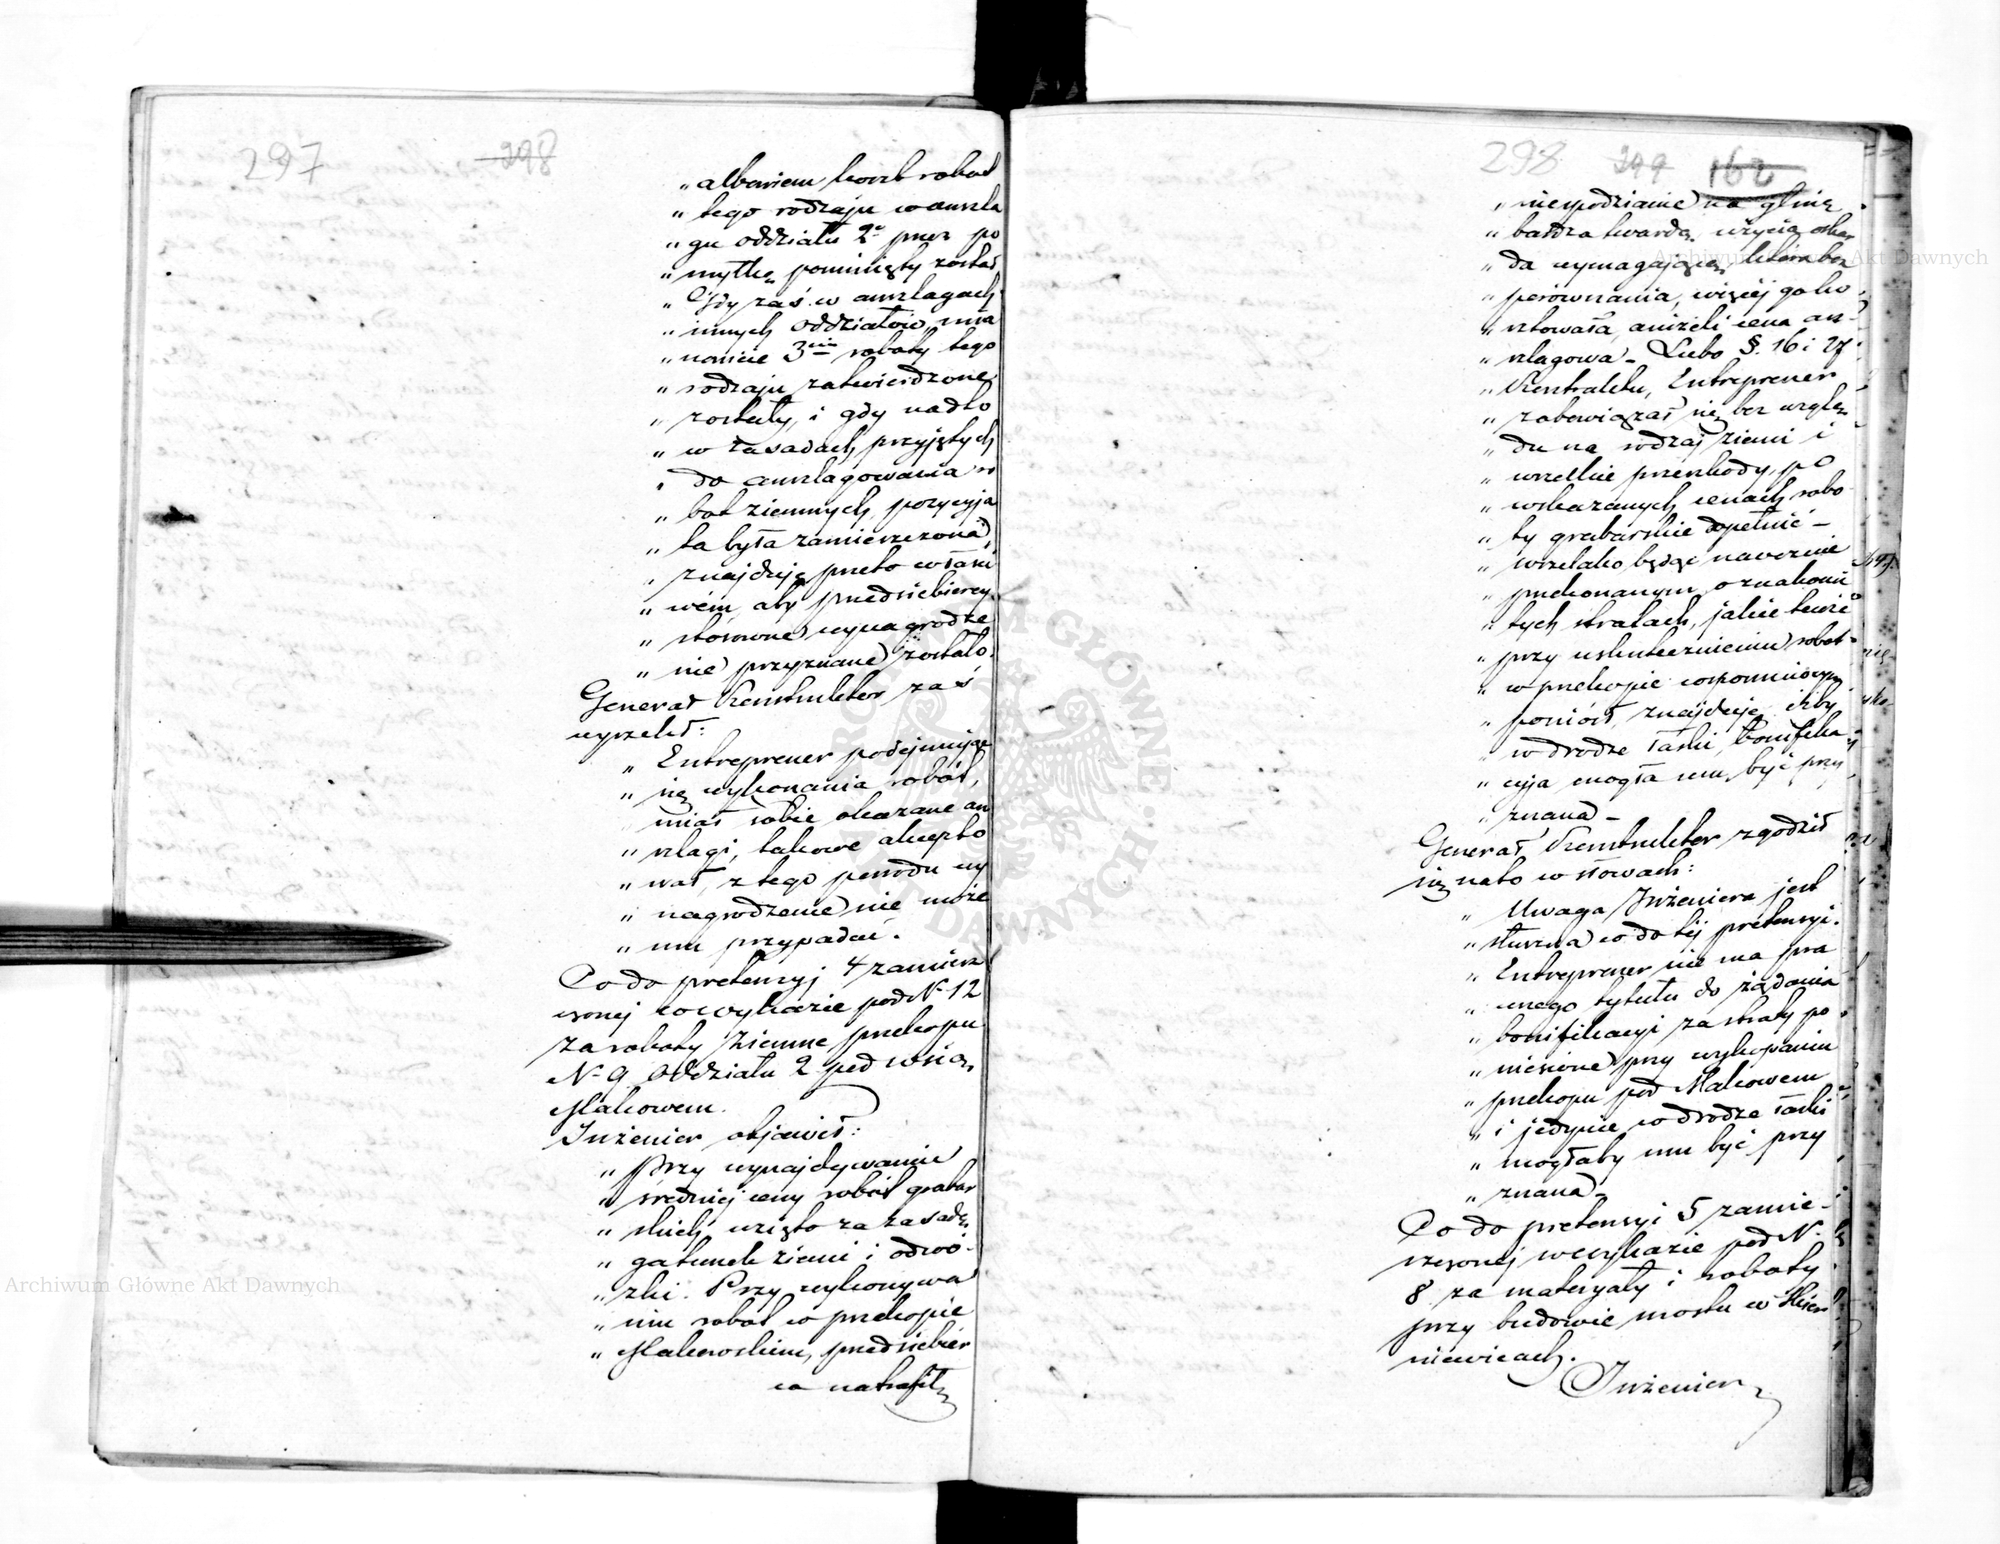 297 298
„ albowiem koszt robot
„ tego rodzaju w anszla
„ gu oddziału 2º przez po
„ myłkę pominięty został
„ Gdy zaś w anszlagach
„ innych oddziałów, mia
„ nowicie 3cim roboty tego
„ rodzaju zatwierdzone
„ zostały, i gdy nadto
„ w zasadach przyjętych
„ do anszlagowania ro
„ bot ziemnych, pozycyja
„ ta była zamieszczona,
„ znajduję przeto właści
„ wém, aby przedsiębiercy
„ stosowne wynagrodze
„ nie przyznane zostało.
Generał Konstruktor zaś
wyrzekł:
„ Entreprener podejmując
„ się wykonania robót,
miał sobie okazane an
„ szlagi, takowe akcepto
„ wał, z tego powodu wy
„ nagrodzenie nie może
„ mu przypadać.
Co do pretensyj 4 zamiesz
czonej w wykazie pod N 12
za roboty ziemne przekopu
N 9 Oddziału 2 pod wsią
Makowem.
Inżenier objawił:
„ Przy wynajdywaniu
„ średniej ceny robót grabar
„ skich, wzięto za zasadę,
„ gatunek ziemi i odwó-
„ zki. Przy wykonywa
„ niu robot w przekopie
„ Makowskim, przedsiębier
ca natrafił
298 299 162
„ niespodzianie na glinę
„ bardzo twardą, użycia oskar
„ da wymagającą, która bez
„ porównania, więcej go ko
„ sztowała, aniżeli cena an-
„ szlagowa – Lubo §. 16 i 27
„ Kontraktu, Entreprener
„ zobowiązał się, bez wzglę
„ du na rodzaj ziemi i
„ wszelkie przeszkody, po
„ wskazanych cenach robo
„ ty grabarskie dopełnić –
„ wszelako będąc naocznie
„ przekonanym o znakomi
„ tych stratach, jakie tenże
„ przy uskutecznieniu robot
„ w przekopie wspomnionym
„ poniósł, znajduję, iżby
„ w drodze łaski, bonifika
„ cyja mogła mu być przy
„ znana –
Generał Konstruktor zgodził
się na to w słowach:
„ Uwaga Inżeniera jest
„ słuszna co do téj pretensyi.
„ Entreprener nie ma pra
„ wnego tytułu do żądania
„ bonifikacyi za straty po
„ niesione przy wykopaniu
„ przekopu pod Makowem
„ i jedynie w drodze łaski
„ mogłaby mu być przy
„ znana –
Co do pretensyi 5 zamie-
szczonej w wykazie pod N.
8 za materyały i roboty
przy budowie mostu w Skier
niewicach.
Inżenier
Archiwum Główne Akt Dawnych
Archiwum Główne Akt Dawnych
ARCHIWUM GŁÓWNE AKT DAWNYCH